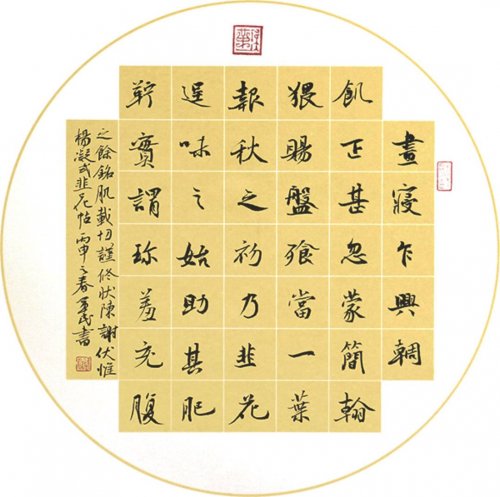 晝寢乍興輖
飢正甚忽蒙簡翰
猥賜盤飧當一葉
報秋之初乃韭花
逞味之始助其肥
羜實謂珍羞充腹
之餘銘肌載切謹修狀陳謝伏惟
楊凝式韭花帖丙申之春書